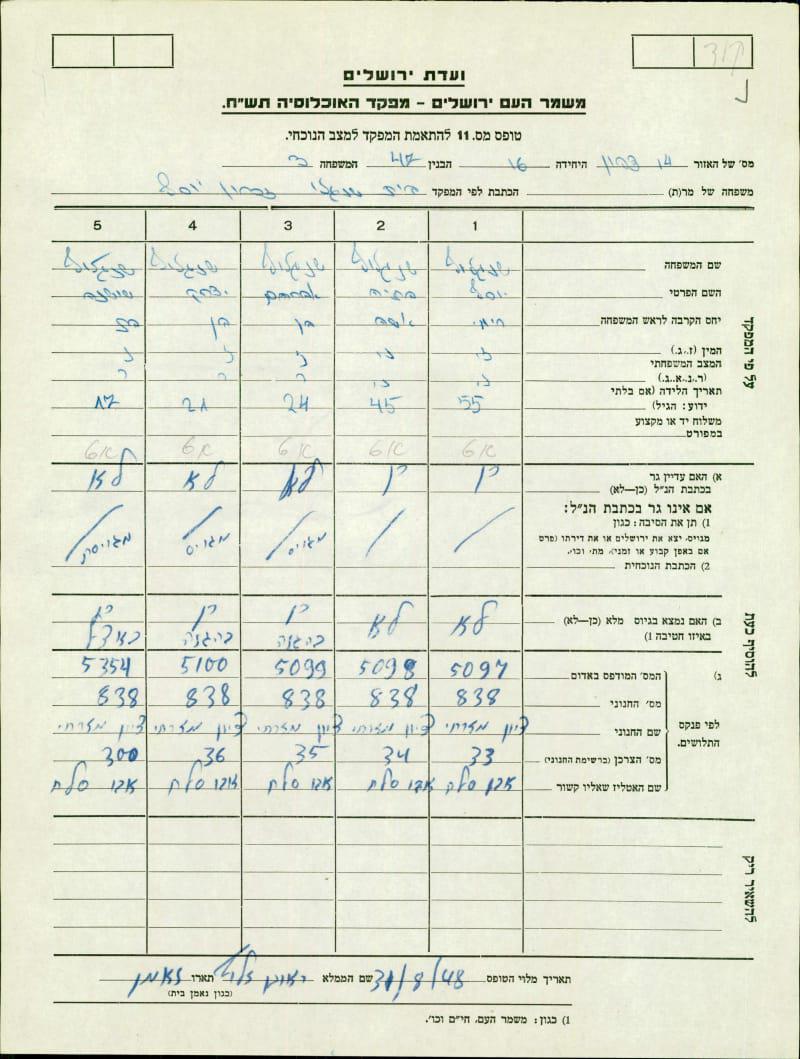 ועדת ירושלים
משמר העם ירושלים – מפקד האוכלוסיה תש"ח.
טופס מס. 11 להתאמת המפקד למצב הנוכחי.
מס' של האזור 14 היחידה 16 הבנין 47 המשפחה
משפחה של מר(ת) הכתבת לפי המפקד
1 2 3 4 5
על פי המפקד
שם המשפחה
השם הפרטי יוסף אברהם יצחק שושנה
יחס הקרבה לראש המשפחה אשה בן בן בת
המין (ז.,נ.) ז. נ. ז. ז. נ.
המצב המשפחתי
(ר.,נ.,א.,ג.) נ. נ. ר ר ר
תאריך הלידה (אם בלתי
ידוע: הגיל) 55 45 24 21 17
משלוח יד או מקצוע
במפורט
להוסיף כעת
א) האם עדיין גר
בכתבת הנ"ל (כן—לא) כן כן לא לא לא
אם אינו גר בכתבת הנ"ל:
1) תן את הסיבה: כגון
מגויס, יצא את ירושלים או את דירתו (פרט
אם באפן קבוע או זמני), מת, וכו'. / / מגויס מגויס מגויסת
2) הכתבת הנוכחית
ב) האם נמצא בגיוס מלא (כן—לא) לא לא כן כן כן
באיזו חטיבה 1) בהגנה בהגנה באצל
ג) לפי פנקס התלושים.
המס' המודפס באדום 5097 5098 5099 5100 5354
מס' החנוני 838 838 838 838 838
שם החנוני ציון מזרחי ציון מזרחי ציון מזרחי ציון מזרחי ציון מזרחי
מס' הצרכן (ברשימת החנוני) 33 34 35 36 300
שם האטליז שאליו קשור אבו סלח אבו סלח אבו סלח אבו סלח אבו סלח
להשאיר ריק
תאריך מלוי הטופס 31/8/48 שם הממלא ראובן תארו נאמן
(כגון נאמן בית)
1) כגון: משמר העם, חי"ם וכו'.